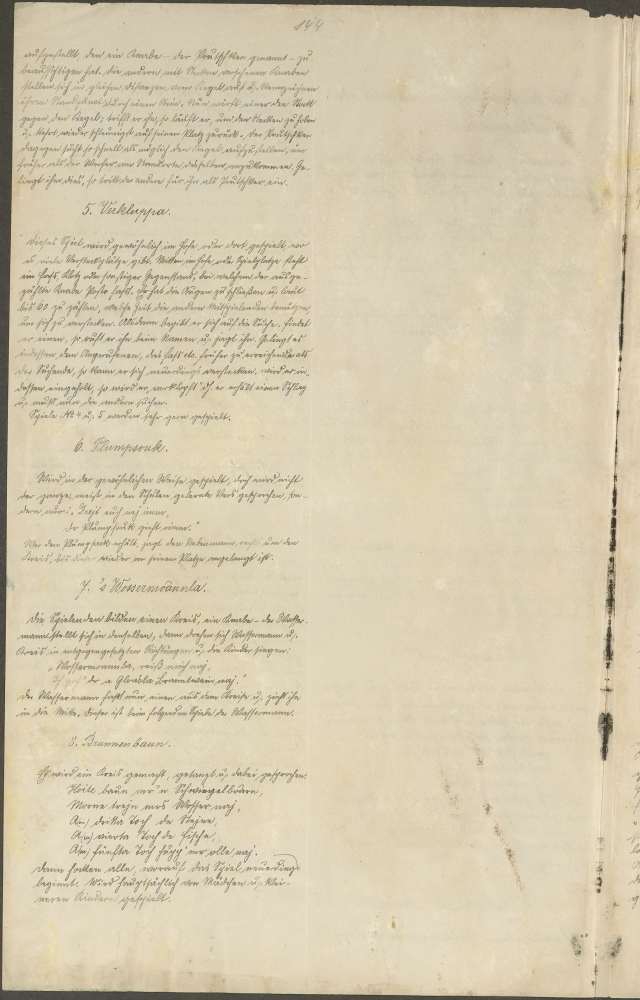 144
aufgestellt, den ein Knabe – der Prutschker genannt – zu
beaufsichtigen hat. Die andern mit Stecken versehenen Knaben
stellen sich in gleichen Distanzen vom Kegel auf u. kennzeichnen
ihren Standplatz durch einen Stein. Nun wirft einer den Stock
gegen den Kegel; trifft er ihn, so läuft er, um den Stecken zu holen
u. kehrt wieder schleunigst auf seinen Platz zurück. Der Prutschker
dagegen sucht so schnell als möglich den Kegel aufzustellen, um
früher als der Werfer am Standorte desselben anzukommen. Ge-
lingt ihm dies, so tritt der andere für ihn als Prutschker ein.
5. Verkluppa.
Dieses Spiel wird gewöhnlich im Hofe oder dort gespielt, wo
es viele Versteckplätze gibt. Mitten im Hofe oder Spielplatze steht
ein Faß, Klotz oder sonstiger Gegenstand, bei welchem der ausge-
zählte Knabe Posto faßt. Er hat die Augen zu schließen u. laut
bis 60 zu zählen, welche Zeit die andern Mitspielenden benützen,
um sich zu verstecken. Alsdann begibt er sich auf die Suche. Findet
er einen, so ruft er ihn beim Namen u. jagt ihn. Gelingt es
indessen dem Angerufenen, das Faß etc. früher zu erreichen als
der Suchende, so kann er sich neuerdings verstecken, wird er in-
dessen eingeholt, so wird er „verklopft" d. h. er erhält einen Schlag
u. muß nun die andern suchen.
Spiele № 4 u. 5 werden sehr gern gespielt.
6. Plumpsouk.
Wird in der gewöhnlichen Weise gespielt, doch wird nicht
der ganze, meist in den Schulen gelernte Vers gesprochen, son-
dern nur: „Dreht euch nej imm,
Dr Plumpsouk gieht imm."
Wer den Plumpsack erhält, jagt den Nebenmann rechts um den
Kreis, bis dieser wieder an seinem Platze angelangt ist.
7. 's Wossermoannla.
Die Spielenden bilden einen Kreis, ein Knabe – der Wasser-
mann stellt sich in denselben, dann drehen sich Wassermann u.
Kreis in entgegengesetzten Richtungen u. die Kinder singen:
„Wossermoannla, reiß mich nej,
Ich gah' dr a Glasla Brantwein nej."
Der Wassermann faßt nun einen aus dem Kreise u. zieht ihn
in die Mitte. Dieser ist beim folgenden Spiele der Wassermann.
8. Brunnenbaun.
Es wird ein Kreis gemacht, getanzt u. dabei gesprochen:
Heite baun mr 'n Schwiegelboarn,
Morne trejn mrs Wosser naj,
A(m) dritta Toch de Stejne,
A(m) vierta Toch de Fische,
A(m) fünfta Toch hupp mr olle naj.
Dann hocken alle, worauf das Spiel neuerdings
beginnt. Wird hauptsächlich von Mädchen u. klei-
neren Kindern gespielt.